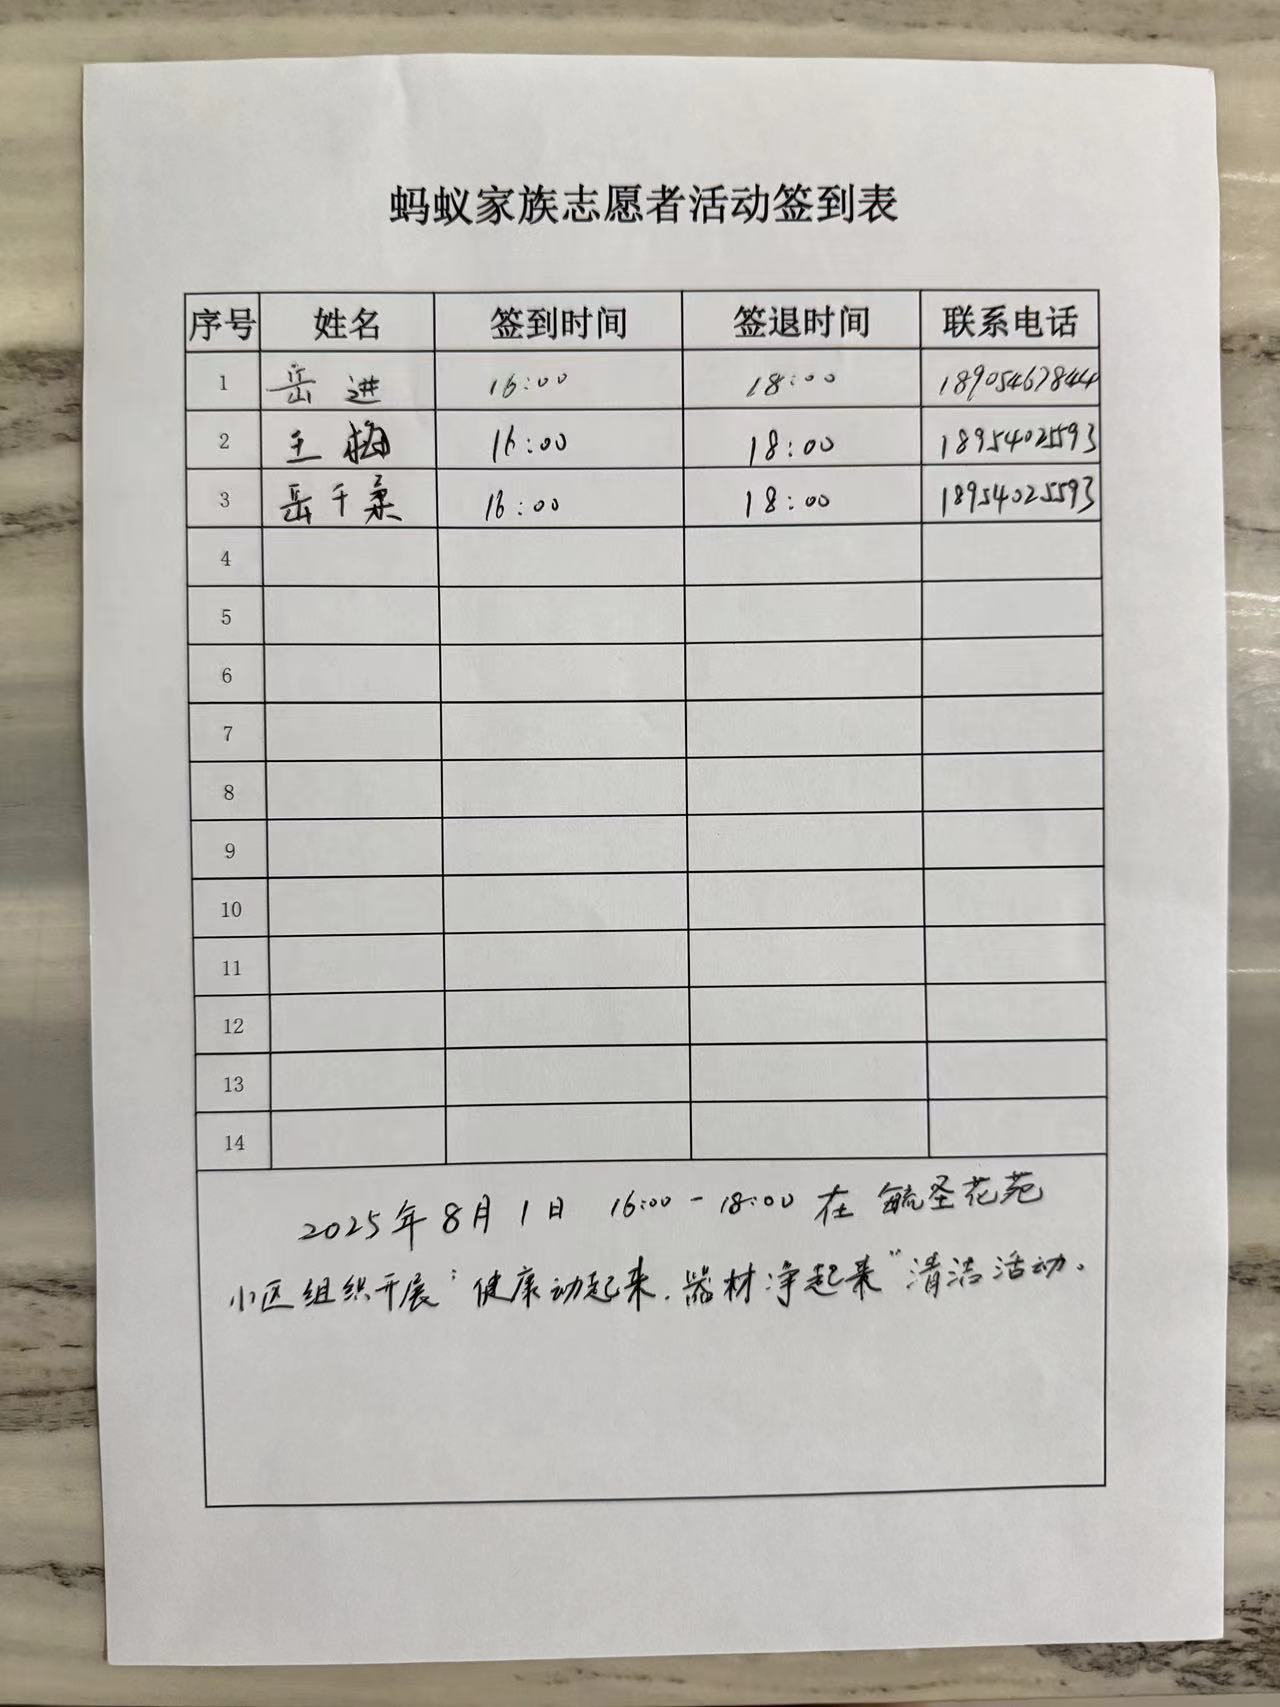 蚂蚁家族志愿者活动签到表
序号 姓名 签到时间 签退时间 联系电话
1 岳进 16:00 18:00 18905467844
2 王梅 16:00 18:00 18954025593
3 岳千柔 16:00 18:00 18954025593
4
5
6
7
8
9
10
11
12
13
14
2025年8月1日 16:00-18:00 在毓圣花苑
小区组织开展“健康动起来.器材净起来”清洁活动.